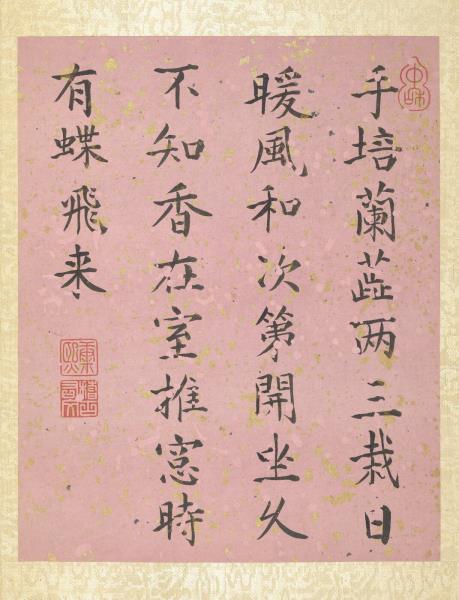 手培蘭茝两三栽日
暖風和次第開坐久
不知香在室推窓時
有蝶飛来
康熙